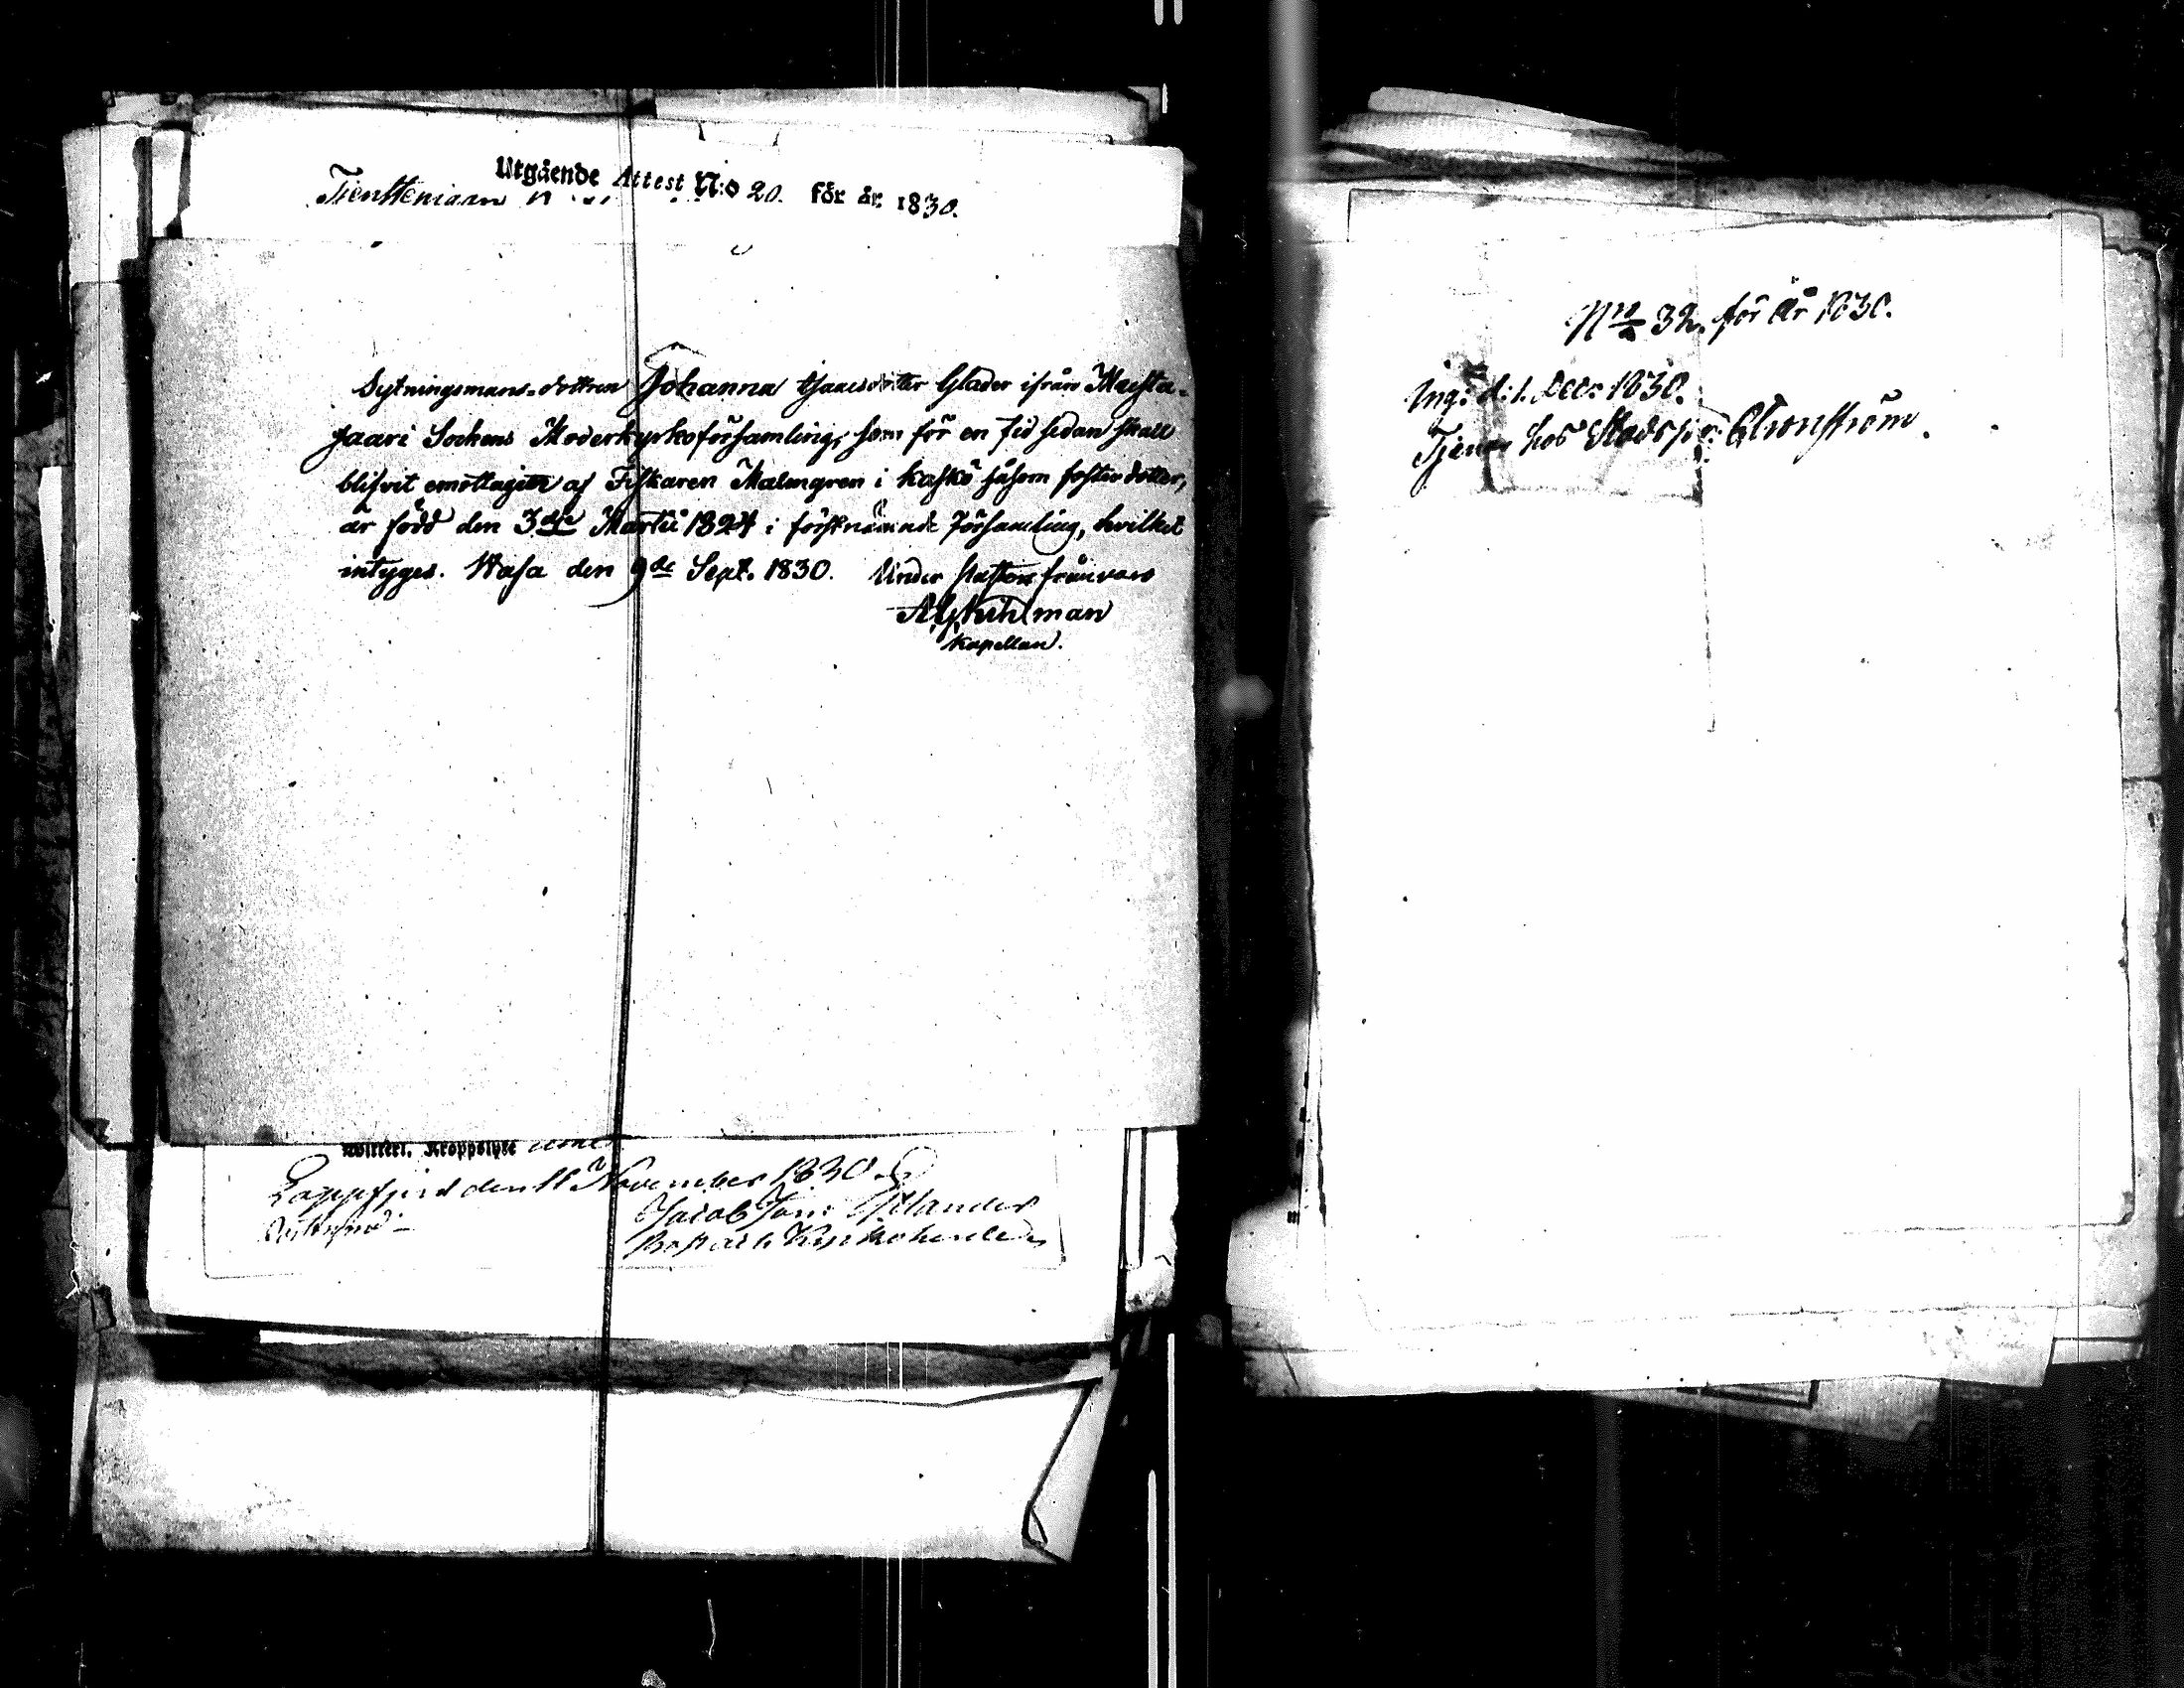 Utgående Attest N:o 20. för år 1830.
Tienstemann
Sytningsmans-dottren Johanna Isaacsdotter Glader ifrån Maxta-
jaari Sockens Moderkyrkoförsamling, som för en tid sedan skall
blifvit emottagen af Fiskaren Malmgren i Kaskö såsom fosterdotter,
är född den 3die Martii 1824 i förstnämnde församling, hvilket
intyges. Wasa den 9de Sept. 1830. Under Pastors frånvaro
Kapellan.
Kroppslyte
Lappfjerd den 11 November 1830
Jacob Joh:
Nro 32. för år 1830.
Ing: d: 1. Dec: 1830.
Tjenar hos